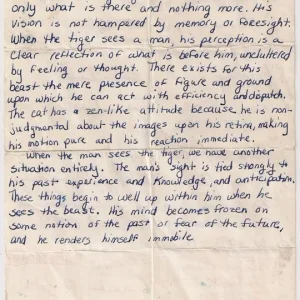 only what is there and nothing more. His
vision is not hampered by memory or foresight.
When the tiger sees a man, his perception is a
clear reflection of what is before him, uncluttered
by feeling or thought. There exists for this
beast the mere presence of figure and ground
upon which he can act with efficiency and dispatch.
The cat has a zen-like attitude because he is non-
judgmental about the images upon his retina, making
his motion pure and his reaction immediate
When the man sees the tiger, we have another
situation entirely. The man's sight is tied strongly to
his past experience and knowledge, and anticipation.
These things begin to well up within him when he
sees the beast. His mind becomes frozen on
some notion of the past or fear of the future,
and he renders himself immobile